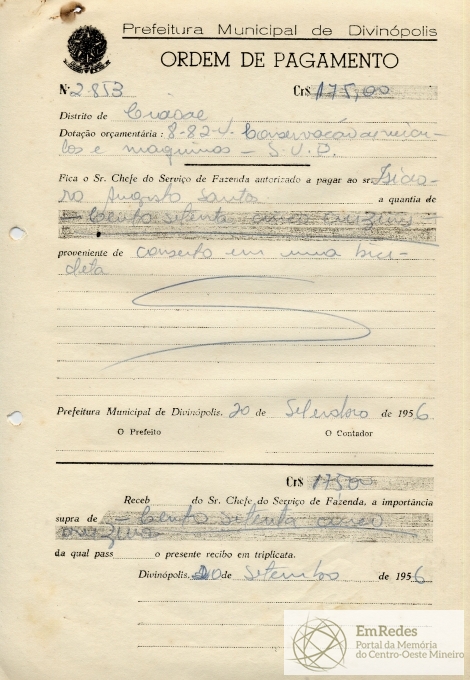 Prefeitura Municipal de Divinópolis
ORDEM DE PAGAMENTO
N.º 2.853 Cr$ 175,00
Distrito de
Dotação orçamentária : 8-82-4 Conservação de veicu-
los e maquinas - S.V.O.
Fica o Sr. Chefe do Serviço de Fazenda autorizado a pagar ao sr. Isido-
ro Augusto Santos a quantia de
- cento setenta cinco cruzeiros
proveniente de conserto em uma bici-
cleta
Prefeitura Municipal de Divinópolis. 20 de Setembro de 1956.
O Prefeito O Contador
Cr$ 175,00
Receb do Sr. Chefe do Serviço de Fazenda, a importância
supra de - cento setenta cinco
cruzeiros
da qual pass o presente recibo em triplicata.
Divinópolis. 20 de Setembro de 1956
EmRedes
Portal da Memória
do Centro-Oeste Mineiro